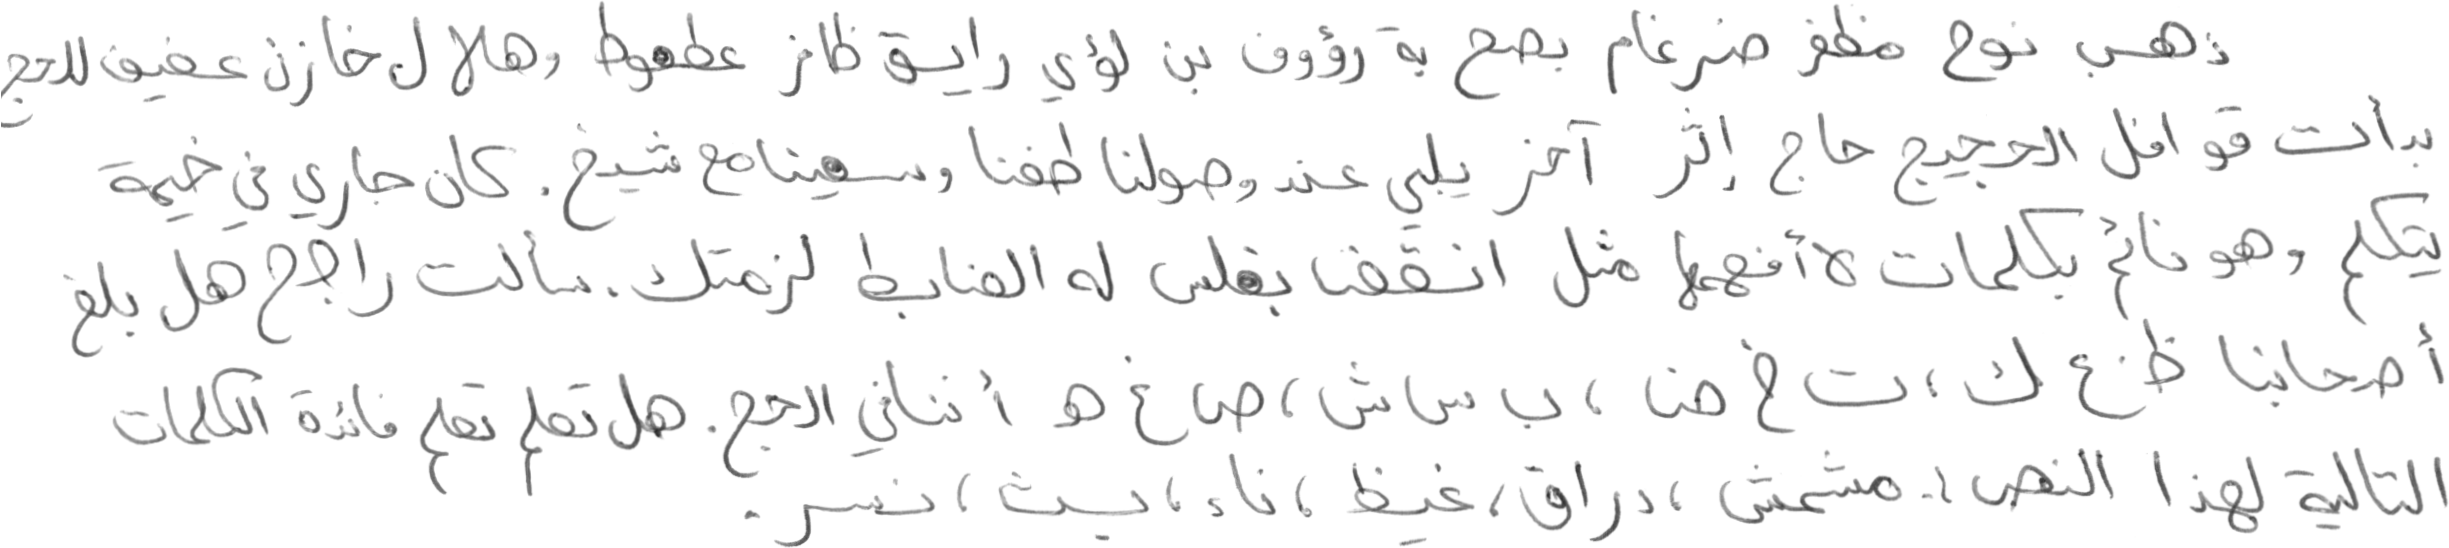 ذهب نوح مظفر ضرغام بصحبة رؤوف بن لؤي رايق ظافر عطعوط وهلال خازن عفيف للحج
بدأت قوافل الحجيج حاج إثر آخر يلبي عند وصولنا طفنا وسعينا مع شيخ. كان جاري في خيمة
يتكلم وهو نائم بكلمات لا أفهمها مثل انقفنا بغلس له الضابط لزمتك. سألت راجح هل بلغ
أصحابنا ظ ن ع ك ، ت خ ض ، ب س ا ش ، ص ا غ هو أننا في الحج. هل تعلم تعلم فائدة الكلمات
التالية لهذا النص ؛. مشمش ، دراق ، غيظ ، ناء ، بيث ، نسر .